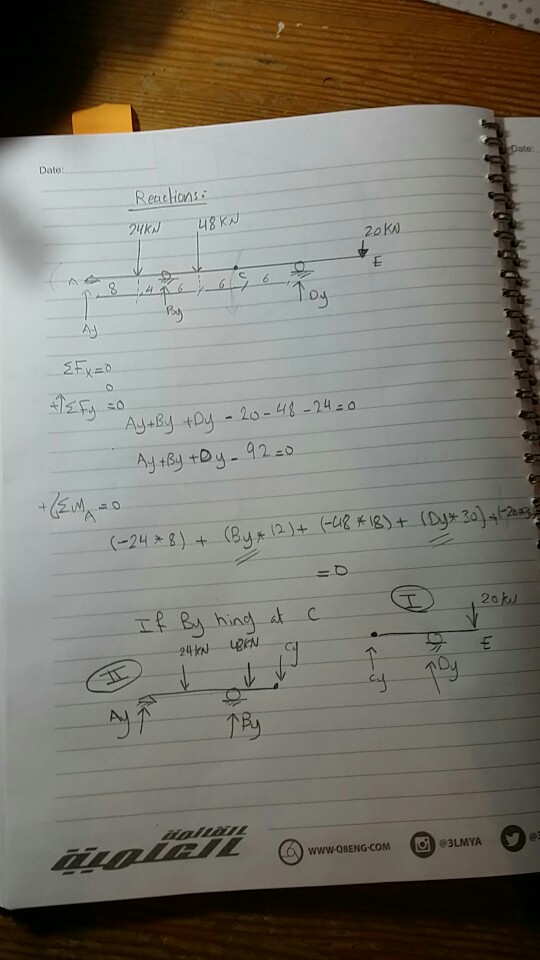 Date:
Date:
Reactions:
24KN 48KN 20KN
A C E
8 4 6 6 6
Ay By Dy
ΣFx=0
0
+↑ΣFy=0
Ay+By+Dy-20-48-24=0
Ay+By+Dy-92=0
+(ΣMA=0
(-24*8) + (By*12)+(-48*18)+(Dy*30)+
=0
If By hing at C
II
24KN 48KN Cy
Ay By
I
20KN
Cy Dy E
القانونية
العلومية
WWW.Q8ENG.COM @3LMYA